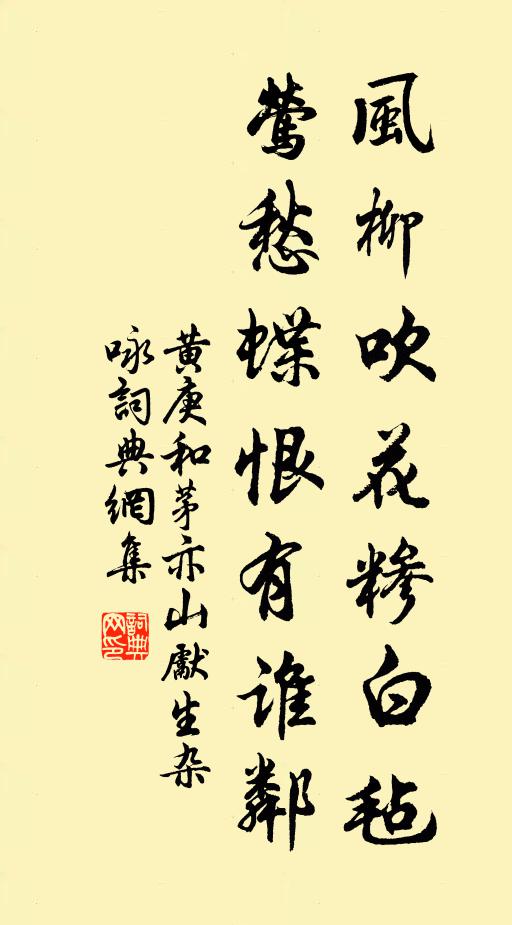 風柳吹花糝白毡
鶯愁蝶恨有誰鄰
黄庚和茅亦山獻生杂
咏詞典網集
詞典网印